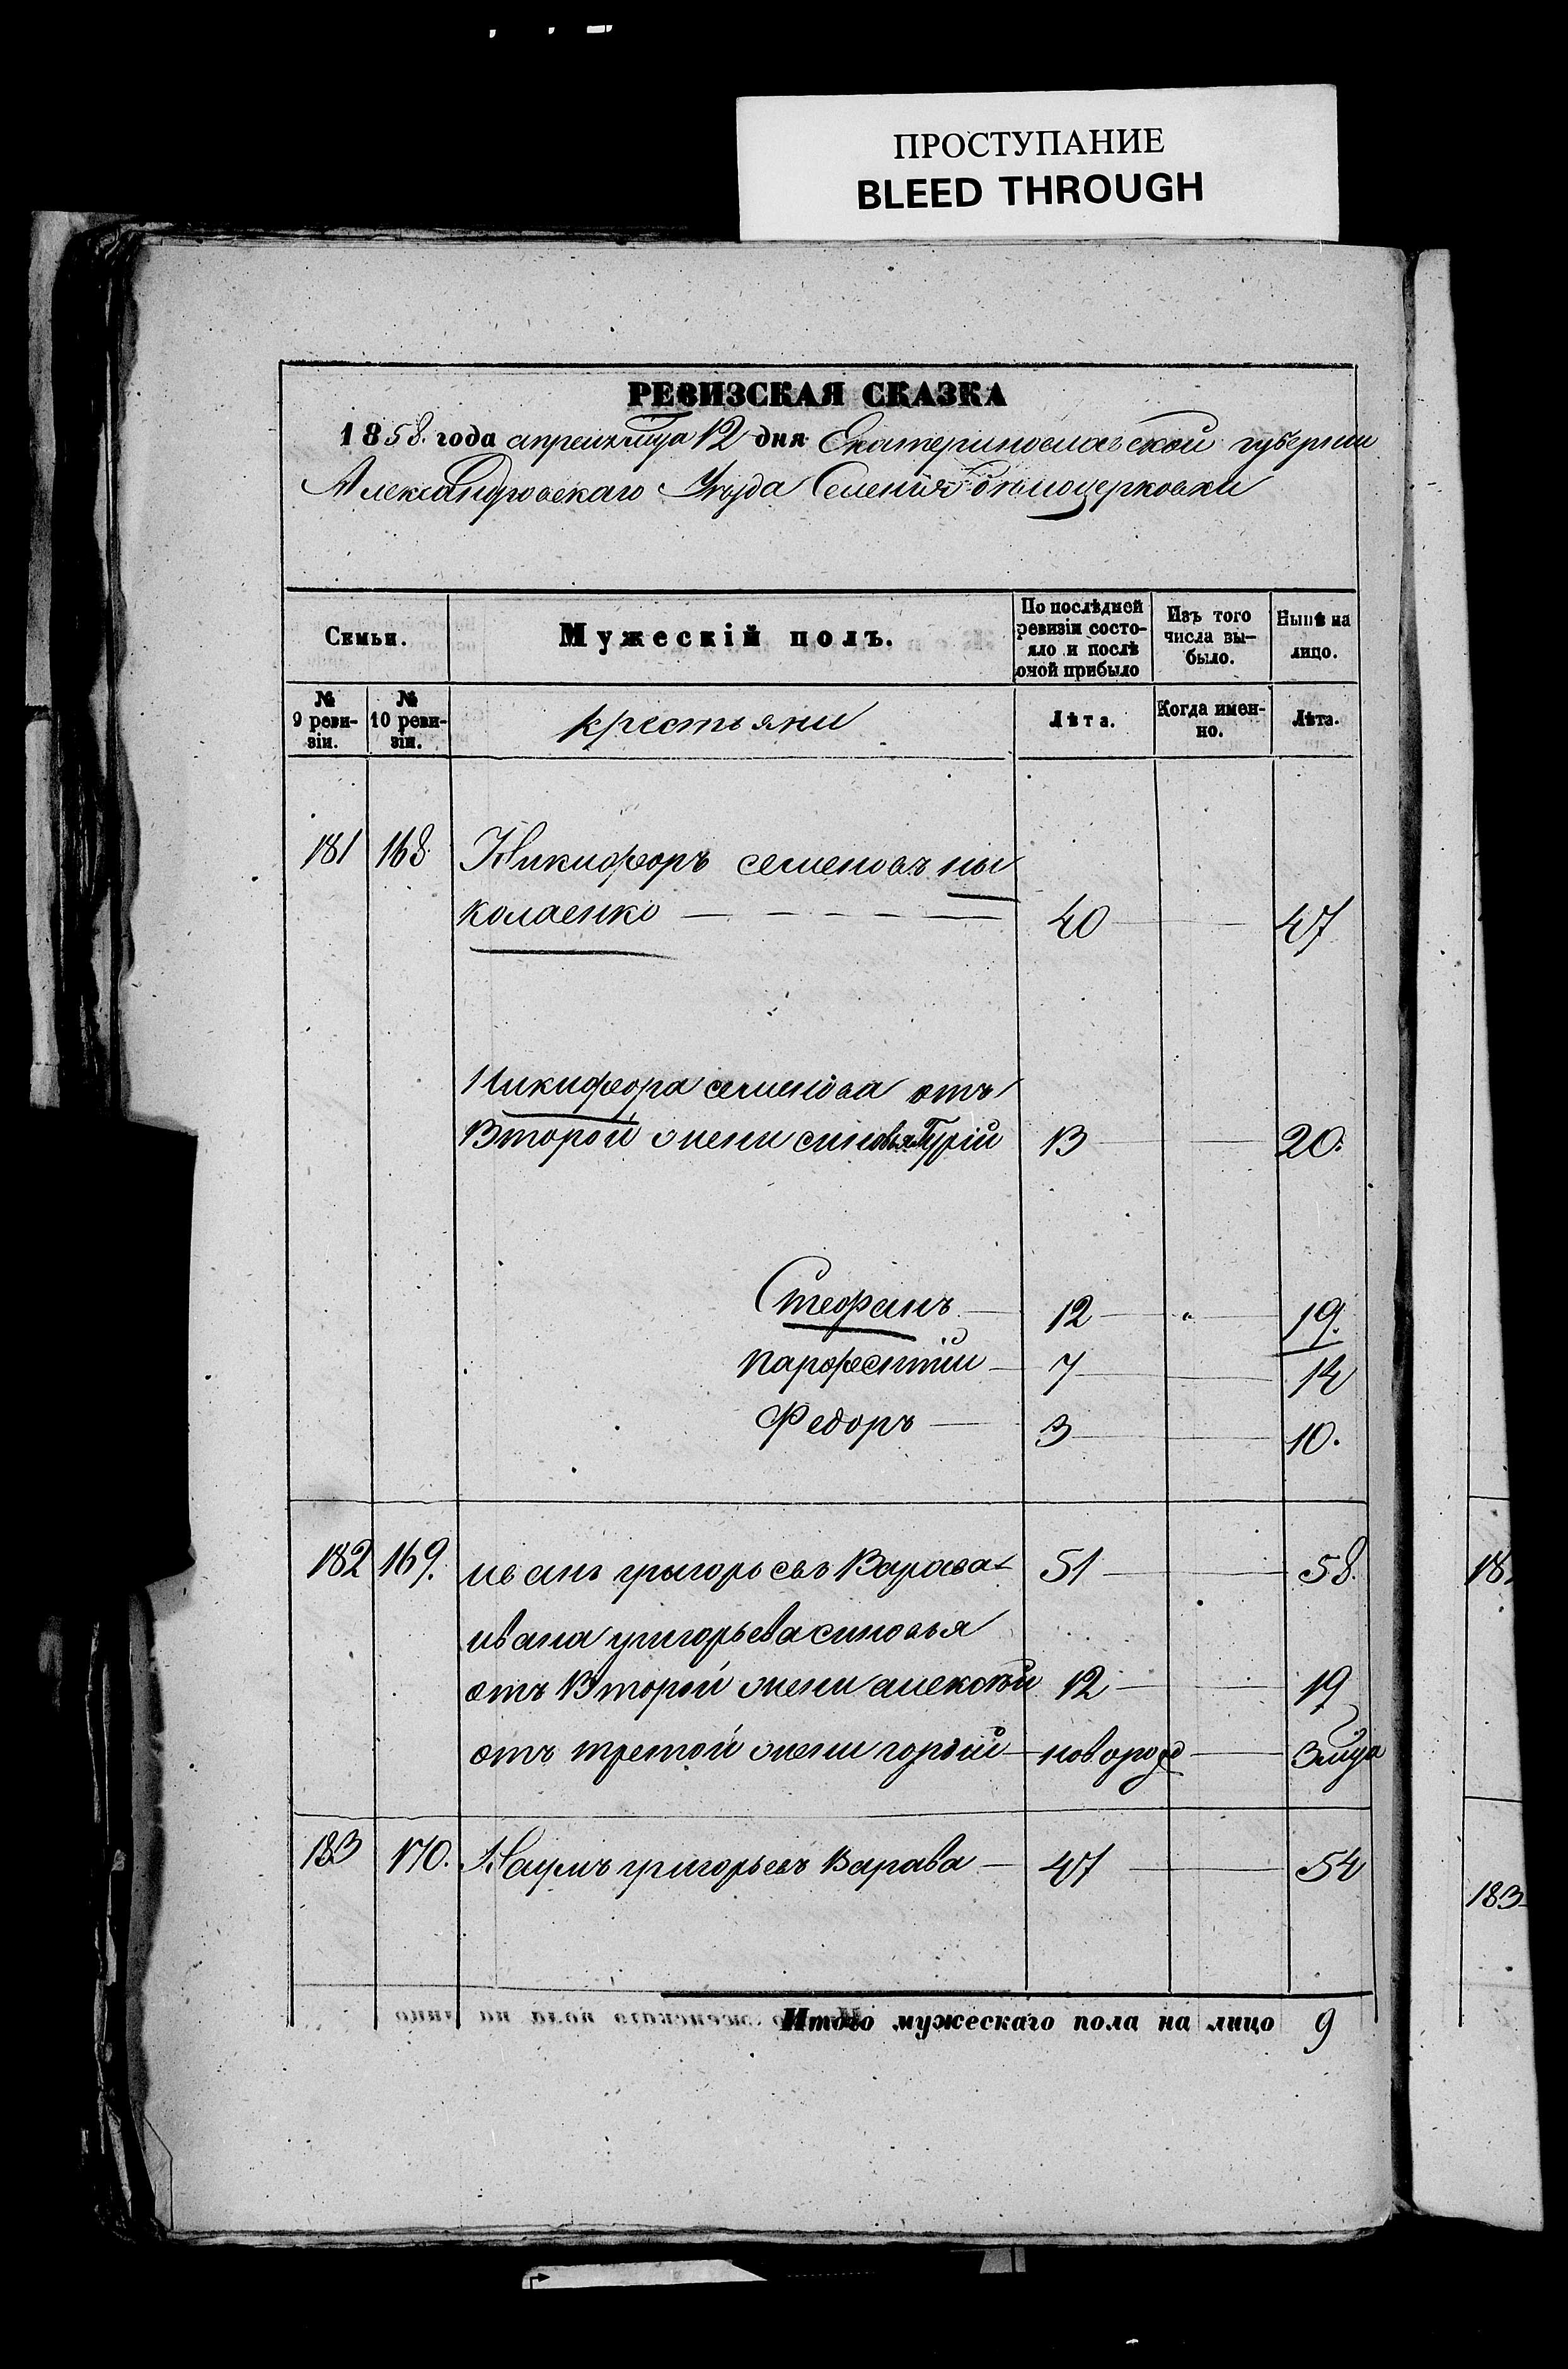 ПРОСТУПАНИЕ
BLEED THROUGH
РЕВИЗСКАЯ СКАЗКА
1858. года апреля мца 12 дня Екатеринославской губернии
Александровскаго Уезда Селения Беломоцерковки
Семьи.
Мужескій полъ.
По послѣдней ревизіи состо-яло и послѣ оной прибыло
Изъ того числа вы-было.
Нынѣ на лицо.
№ 9 реви-зіи.
№ 10 реви-зіи.
крестьяни
Лѣта.
Когда имен-но.
Лѣта.
181 168 Никифоръ семеновъ ны
колаенко 40 47
Никифора семенова отъ
Второй жени синовья Гурій 13 20.
Стефанъ 12 " 19.
парфентій 7 14
Федоръ 3 10.
182 169. иванъ григорьевъ Варава 51 58.
ивана григорьева синовья
отъ Второй жени алексѣй 12 19
отъ третой жени гордій новорож 3 мца
183 170. Наумъ григорьевъ Варава 47 54
Итого мужескаго пола на лицо 9
18
183